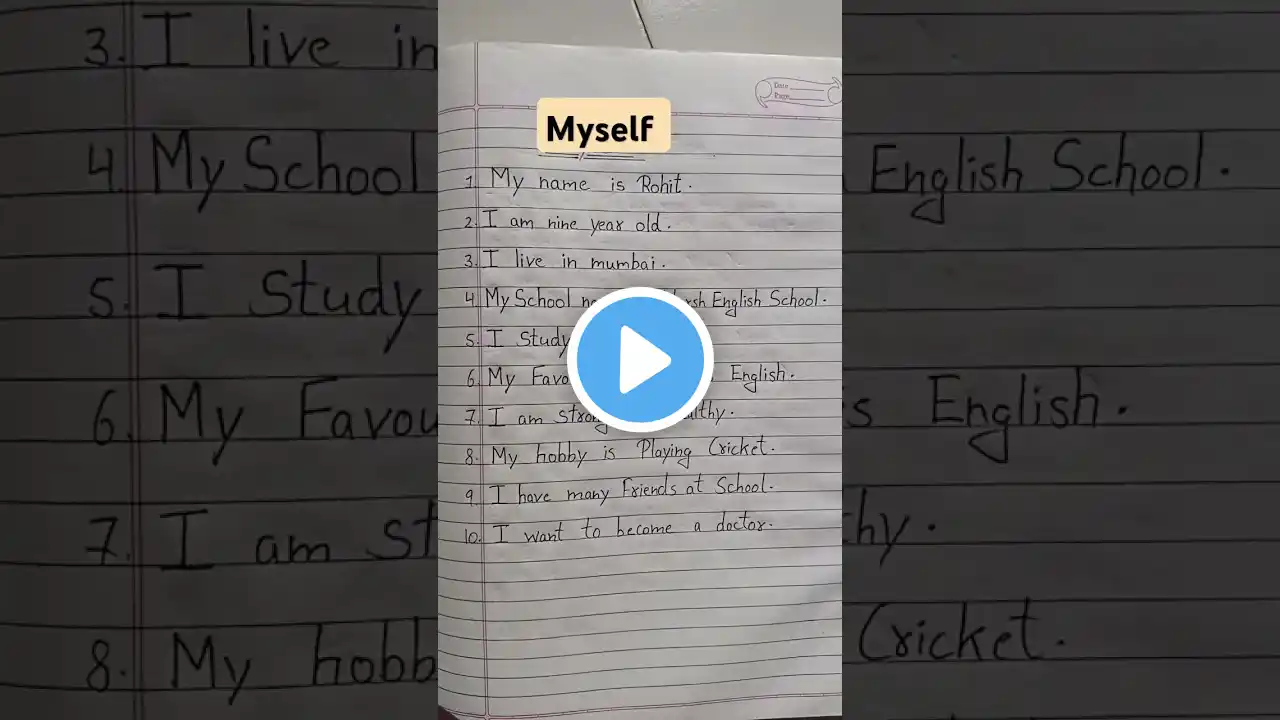 Date
Page
Myself
1. My name is Rohit.
2. I am nine year old.
3. I live in mumbai.
4. My School English School.
5. I Study
6. My English.
7. I am
8. My hobby is Playing Cricket.
9. I have many Friends at School.
10. I want to become a doctor.
3. I live in
4. My School
5. I Study
6. My
7. I am
8. My
English School.
English.
Cricket.